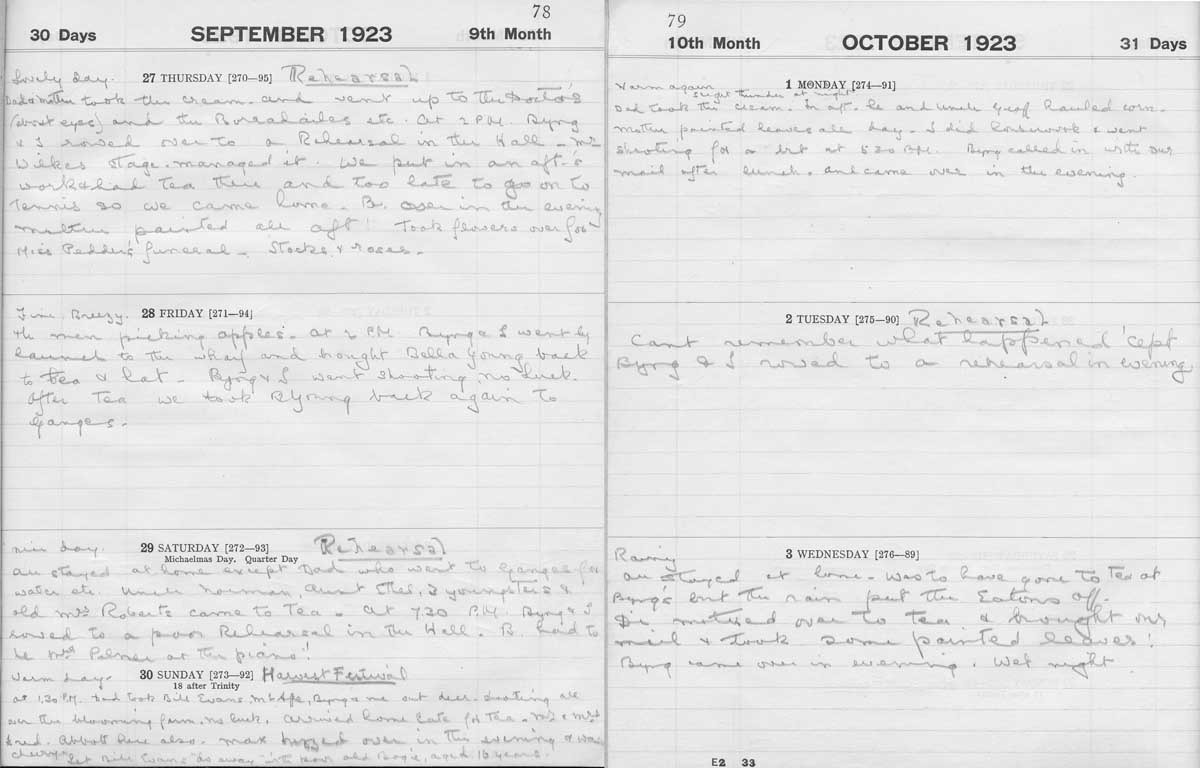 78
30 Days SEPTEMBER 1923 9th Month
Lovely day. 27 THURSDAY [270—95] Rehearsal
took the cream and went up to the Doctor's
eyes) and the etc. At 2 P.M. Byng
& I rowed over to a Rehearsal in the Hall - Mr
Wilkes stage-managed it. We put in an aft's
work & had tea there and too late to go on to
Tennis so we came home. B. over in the evening
mother painted all aft! Took flowers over for
Miss funeral - Stocks & roses.
Fine Breezy. 28 FRIDAY [271—94]
The men picking apples. At P.M. Byng & I went by
launch to the and bought Bella Young back
to tea & - Byng & I went shooting, no luck.
After Tea we took B Young back again to
Ganges.
day. 29 SATURDAY [272—93] Rehearsal
Michaelmas Day. Quarter Day
All stayed at home except Dad who went to Ganges for
water etc. Uncle Norman, Aunt 2 youngsters &
old Mrs Roberts came to Tea. At 7.30 P.M. Byng & I
rowed to a poor Rehearsal in the Hall. B. had to
be Mrs Palmer at the piano!
Warm day. 30 SUNDAY [273—92] Harvest Festival
18 after Trinity
at 1.30 P.M. Dad took Bill Evans, Byng & me out deer-shooting all
over the blooming farm, no luck. Arrived home late for Tea. Mr & Mrs
Fred. Abbott here also. Max buzzed over in the evening &
Let Bill Evans do away with poor old aged 16 years.
79
10th Month OCTOBER 1923 31 Days
1 MONDAY [274—91]
Warm again slight thunder at night
Dad took the cream. In aft. he and Uncle Geoff hauled corn.
Mother painted leaves all day. I did housework & went
shooting for a bit at 5.30 P.M. Byng called in with our
mail after lunch, and came over in the evening.
2 TUESDAY [275—90] Rehearsal
Cant remember what happened 'cept
Byng & I rowed to a rehearsal in evening
3 WEDNESDAY [276—89]
Rainy
All stayed at home. Was to have gone to Tea at
Byng's but the rain put the Eatons off.
Di over to tea & brought our
mail & took some painted leaves!
Byng came over in evening. Wet night
E2 33